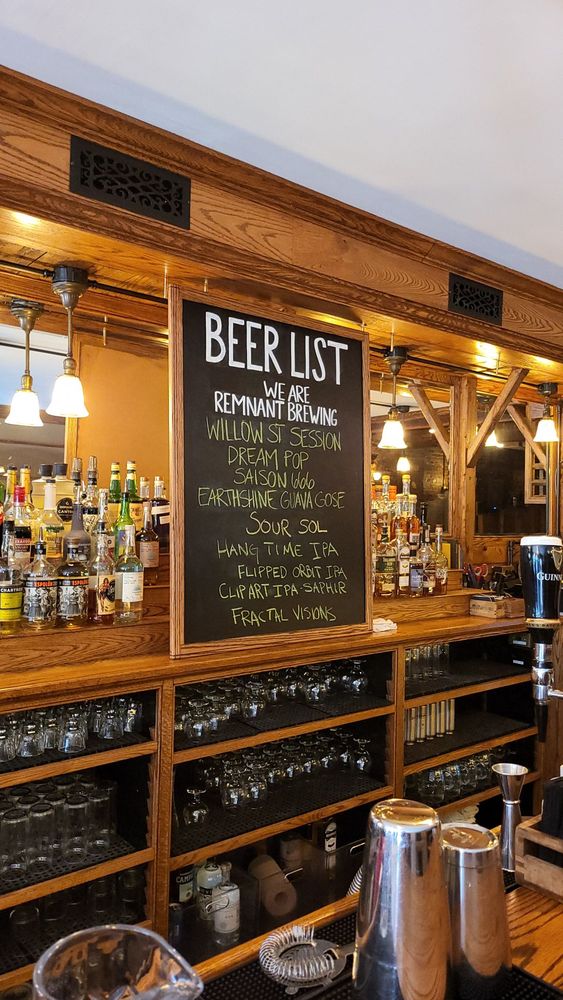 BEER LIST
WE ARE
REMNANT BREWING
WILLOW ST SESSION
DREAM POP
SAISON 666
EARTHSHINE GUAVA GOSE
SOUR SOL
HANG TIME IPA
FLIPPED ORBIT IPA
CLIPART IPA-SAPHIR
FRACTAL VISIONS
GUINNESS
ESPOLÒN
ESPOLÒN